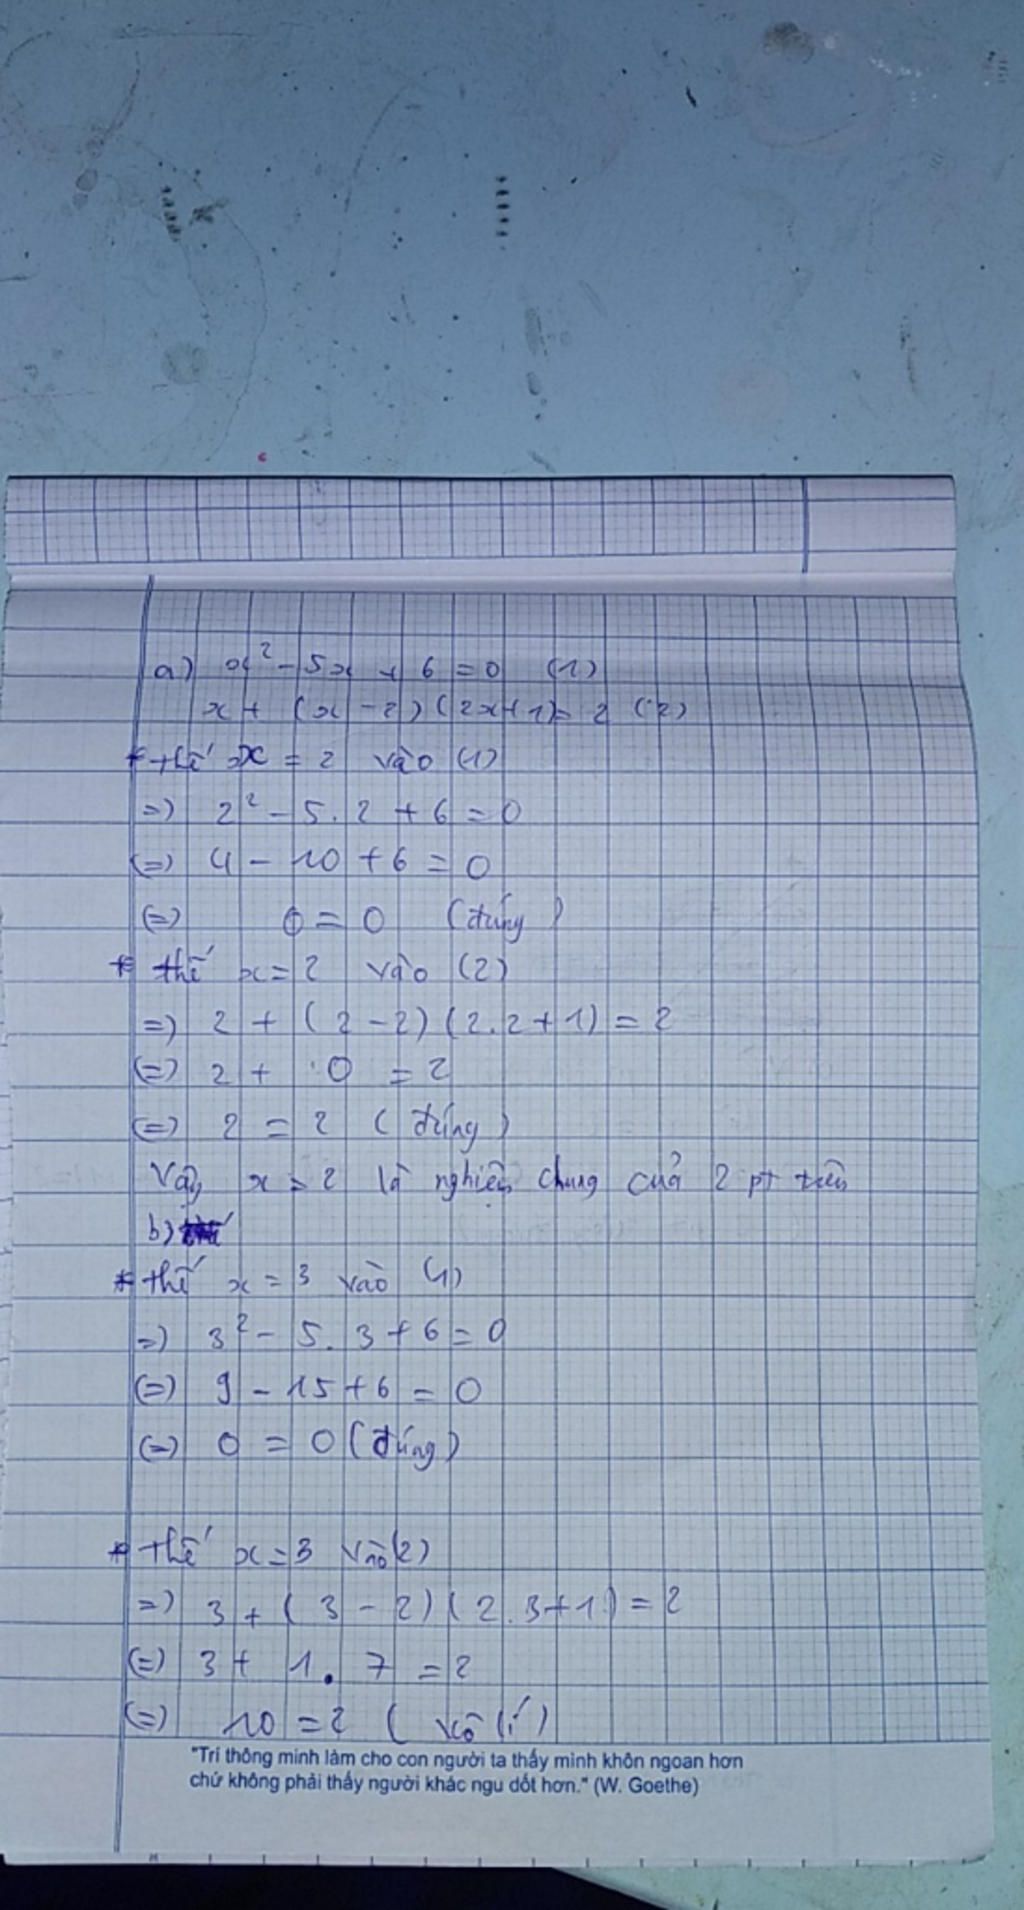 a) x² - 5x + 6 = 0 (1)
x + (x - 2)(2x + 1) = 2 (2)
* thế x = 2 vào (1)
=) 2² - 5. 2 + 6 = 0
(=) 4 - 10 + 6 = 0
(=) 0 = 0 (đúng)
* thế x = 2 vào (2)
=) 2 + (2 - 2)(2.2 + 1) = 2
(=) 2 + 0 = 2
(=) 2 = 2 (đúng)
Vậy x = 2 là nghiệm chung của 2 pt trên
b)
* thế x = 3 vào (1)
=) 3² - 5. 3 + 6 = 0
(=) 9 - 15 + 6 = 0
(=) 0 = 0 (đúng)
* thế x = 3 vào (2)
=) 3 + (3 - 2)(2.3 + 1) = 2
(=) 3 + 1. 7 = 2
(=) 10 = 2 (vô lí)
"Trí thông minh làm cho con người ta thấy mình khôn ngoan hơn
chứ không phải thấy người khác ngu dốt hơn." (W. Goethe)